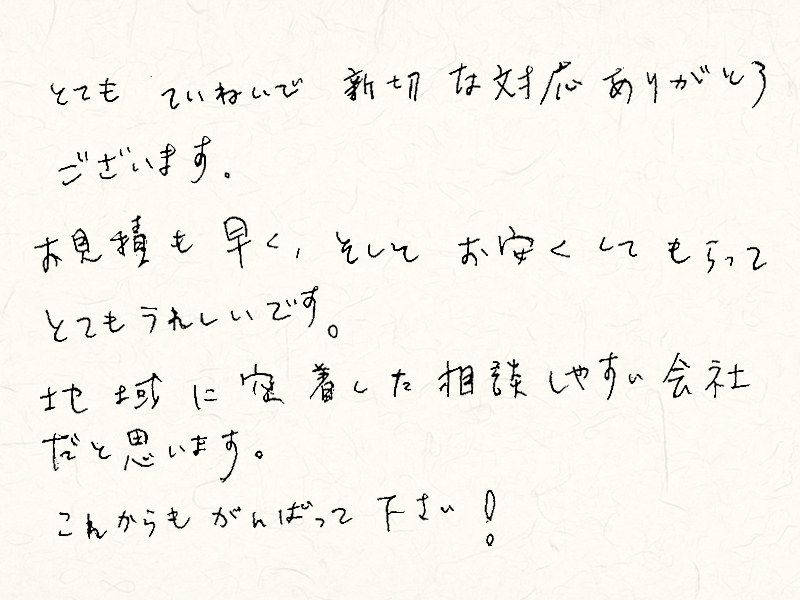 とても ていねいで 新切 な対応 ありがとう
ございます。
お見積も 早く, そして お安く して もらって
とてもうれしいです。
地域に密着した相談しやすい会社
だと思います。
これからも がんばって 下さい!